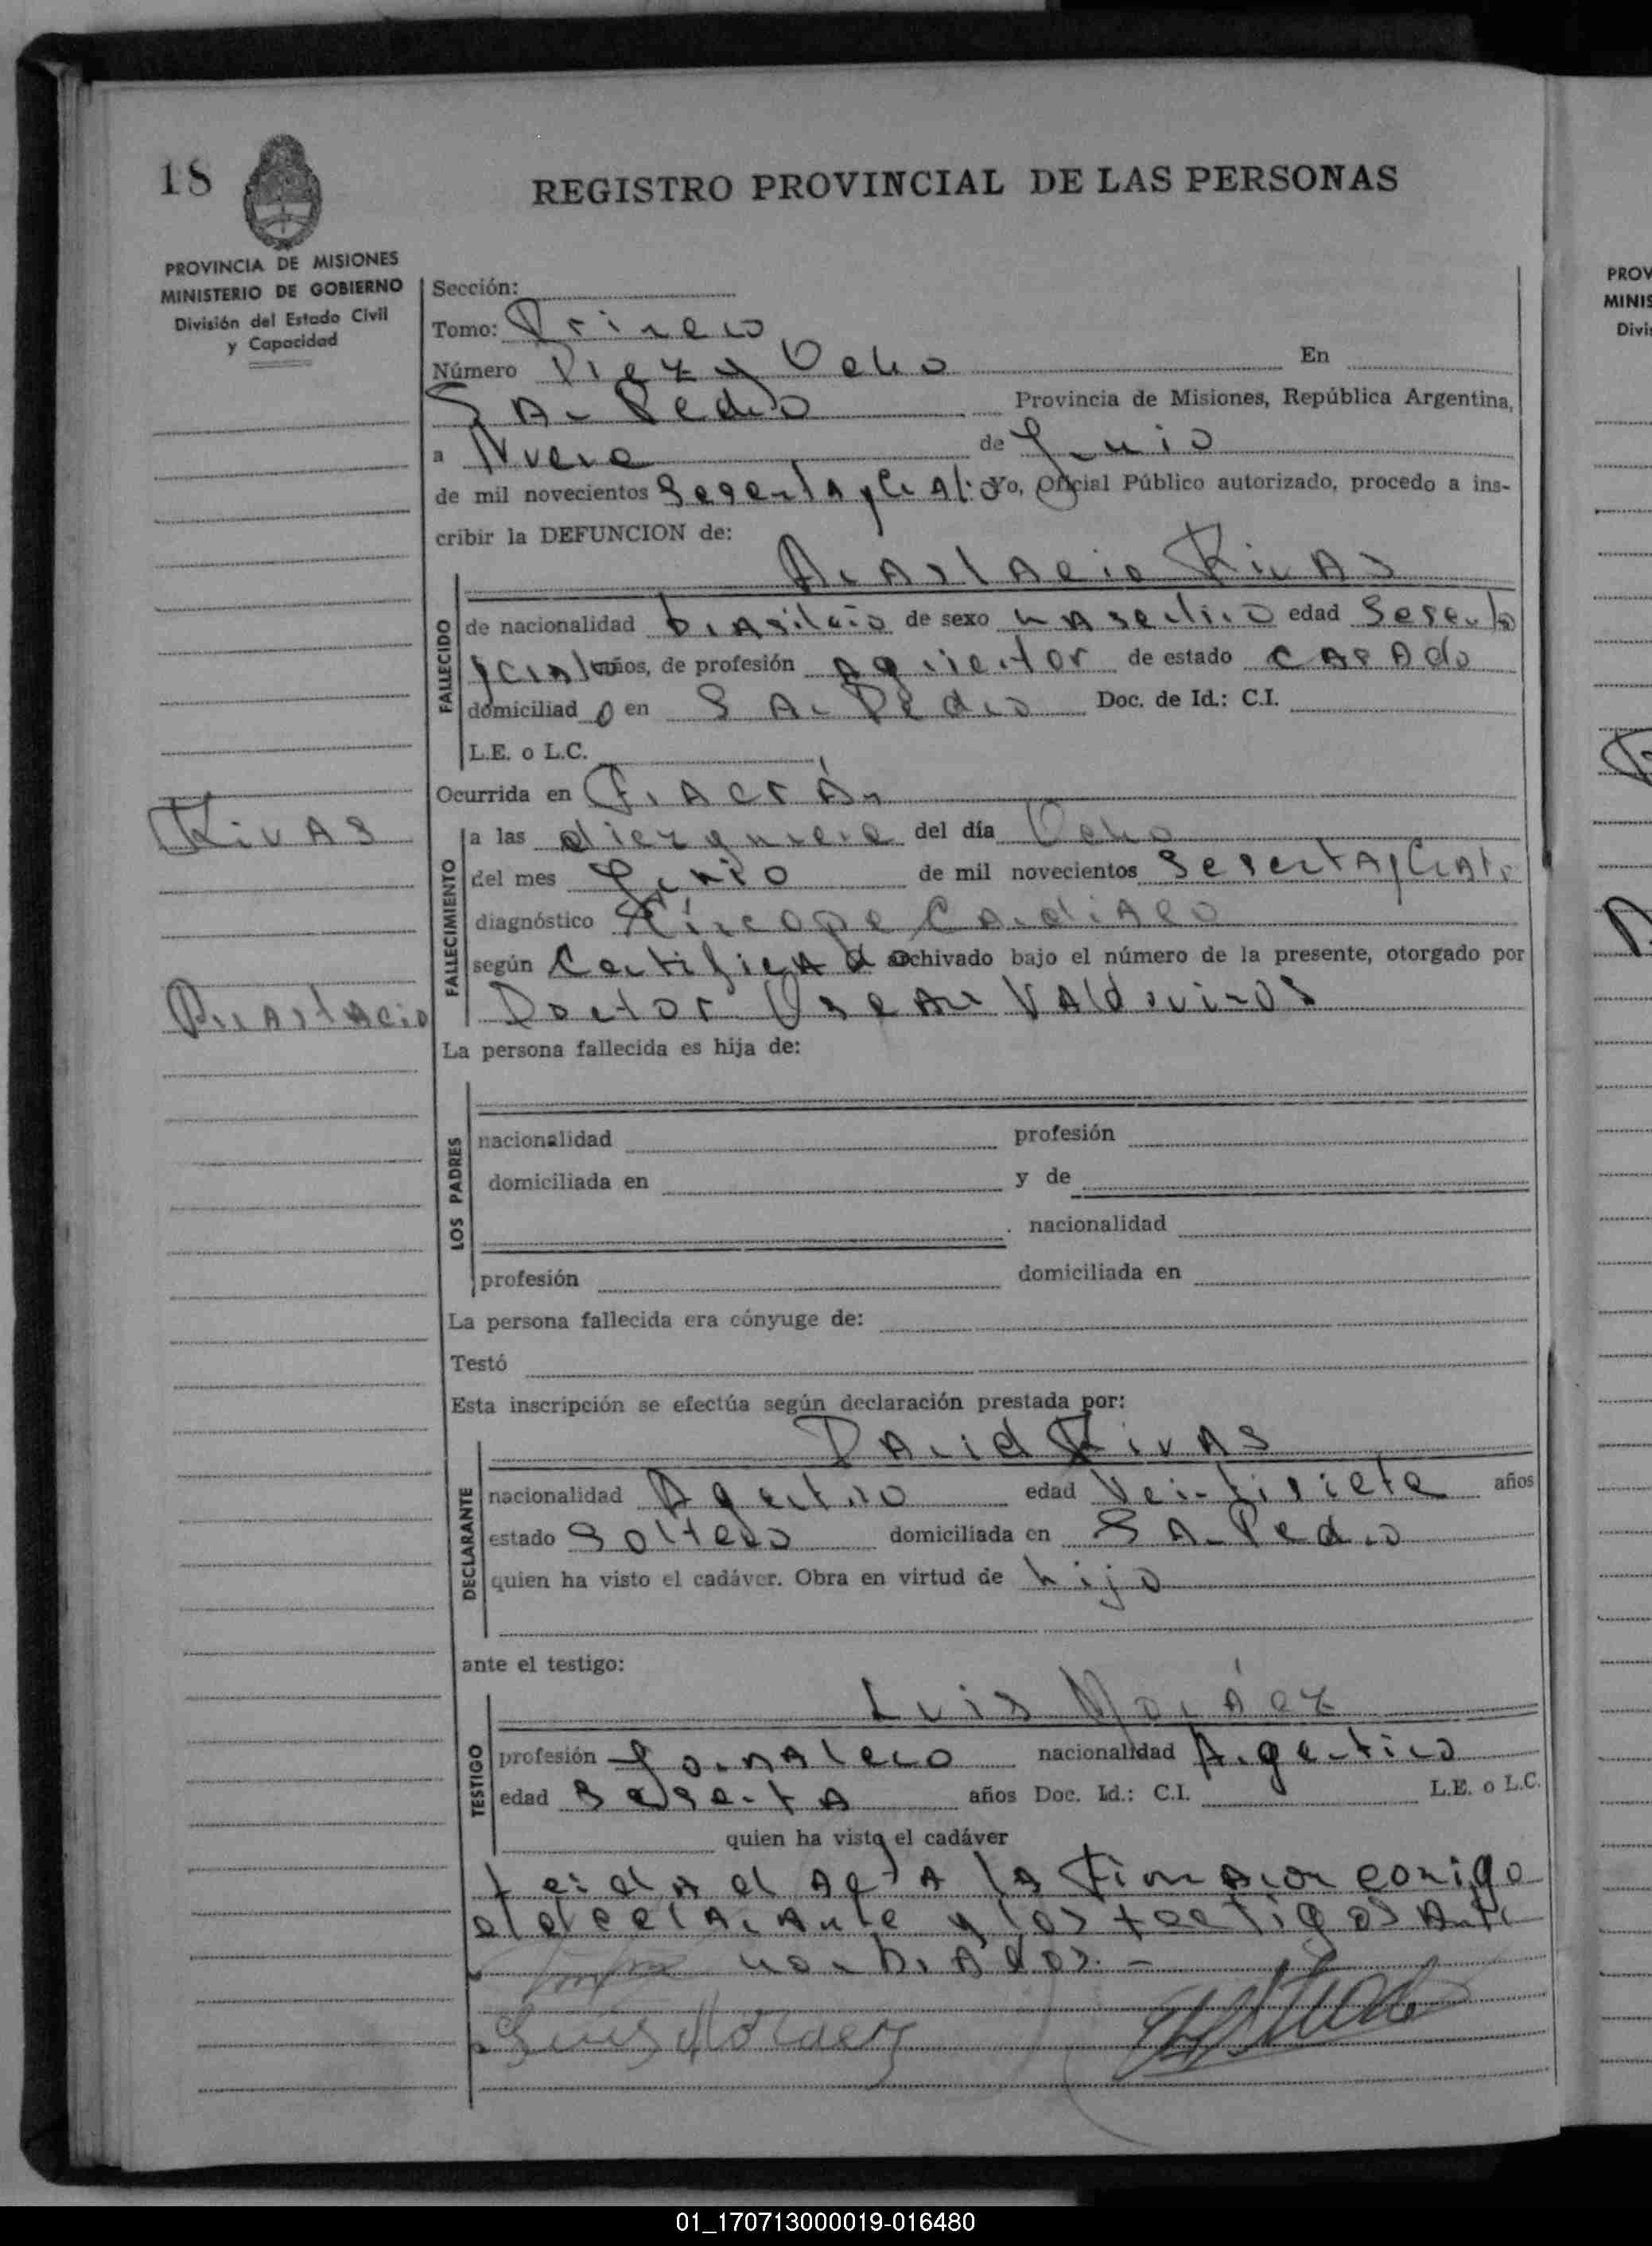 18
REGISTRO PROVINCIAL DE LAS PERSONAS
PROVINCIA DE MISIONES
MINISTERIO DE GOBIERNO
División del Estado Civil
y Capacidad
Sección:
Tomo: Primero
Número Diez y Ocho En
San Pedro Provincia de Misiones, República Argentina,
a Nueve de Junio
de mil novecientos Sesenta y Cuatro Yo, Oficial Público autorizado, procedo a ins-
cribir la DEFUNCION de:
Anastacio Rivas
FALLECIDO
de nacionalidad brasileño de sexo masculino edad Sesenta
y cuatro años, de profesión agricultor de estado casado
domiciliado en San Pedro Doc. de Id.: C.I.
L.E. o L.C.
Ocurrida en
Rivas
Anastacio
FALLECIMIENTO
a las diez y nueve del día Ocho
del mes Junio de mil novecientos Sesenta y Cuatro
diagnóstico Síncope Cardiaco
según Certificado archivado bajo el número de la presente, otorgado por
Doctor Oscar Valdovinos
La persona fallecida es hija de:
LOS PADRES
nacionalidad profesión
domiciliada en y de
nacionalidad
profesión domiciliada en
La persona fallecida era cónyuge de:
Testó
Esta inscripción se efectúa según declaración prestada por:
David Rivas
DECLARANTE
nacionalidad Argentino edad Veintisiete años
estado Soltero domiciliada en San Pedro
quien ha visto el cadáver. Obra en virtud de hijo
ante el testigo:
Luis Moráez
TESTIGO
profesión Jornalero nacionalidad Argentino
edad Sesenta años Doc. Id.: C.I. L.E. o L.C.
quien ha visto el cadáver
Leida el Acta la Firmaron conmigo
el declarante y los testigos Ante
nombrados.-
Luis Moraez
PROV
MINIS
Divi
01_170713000019-016480